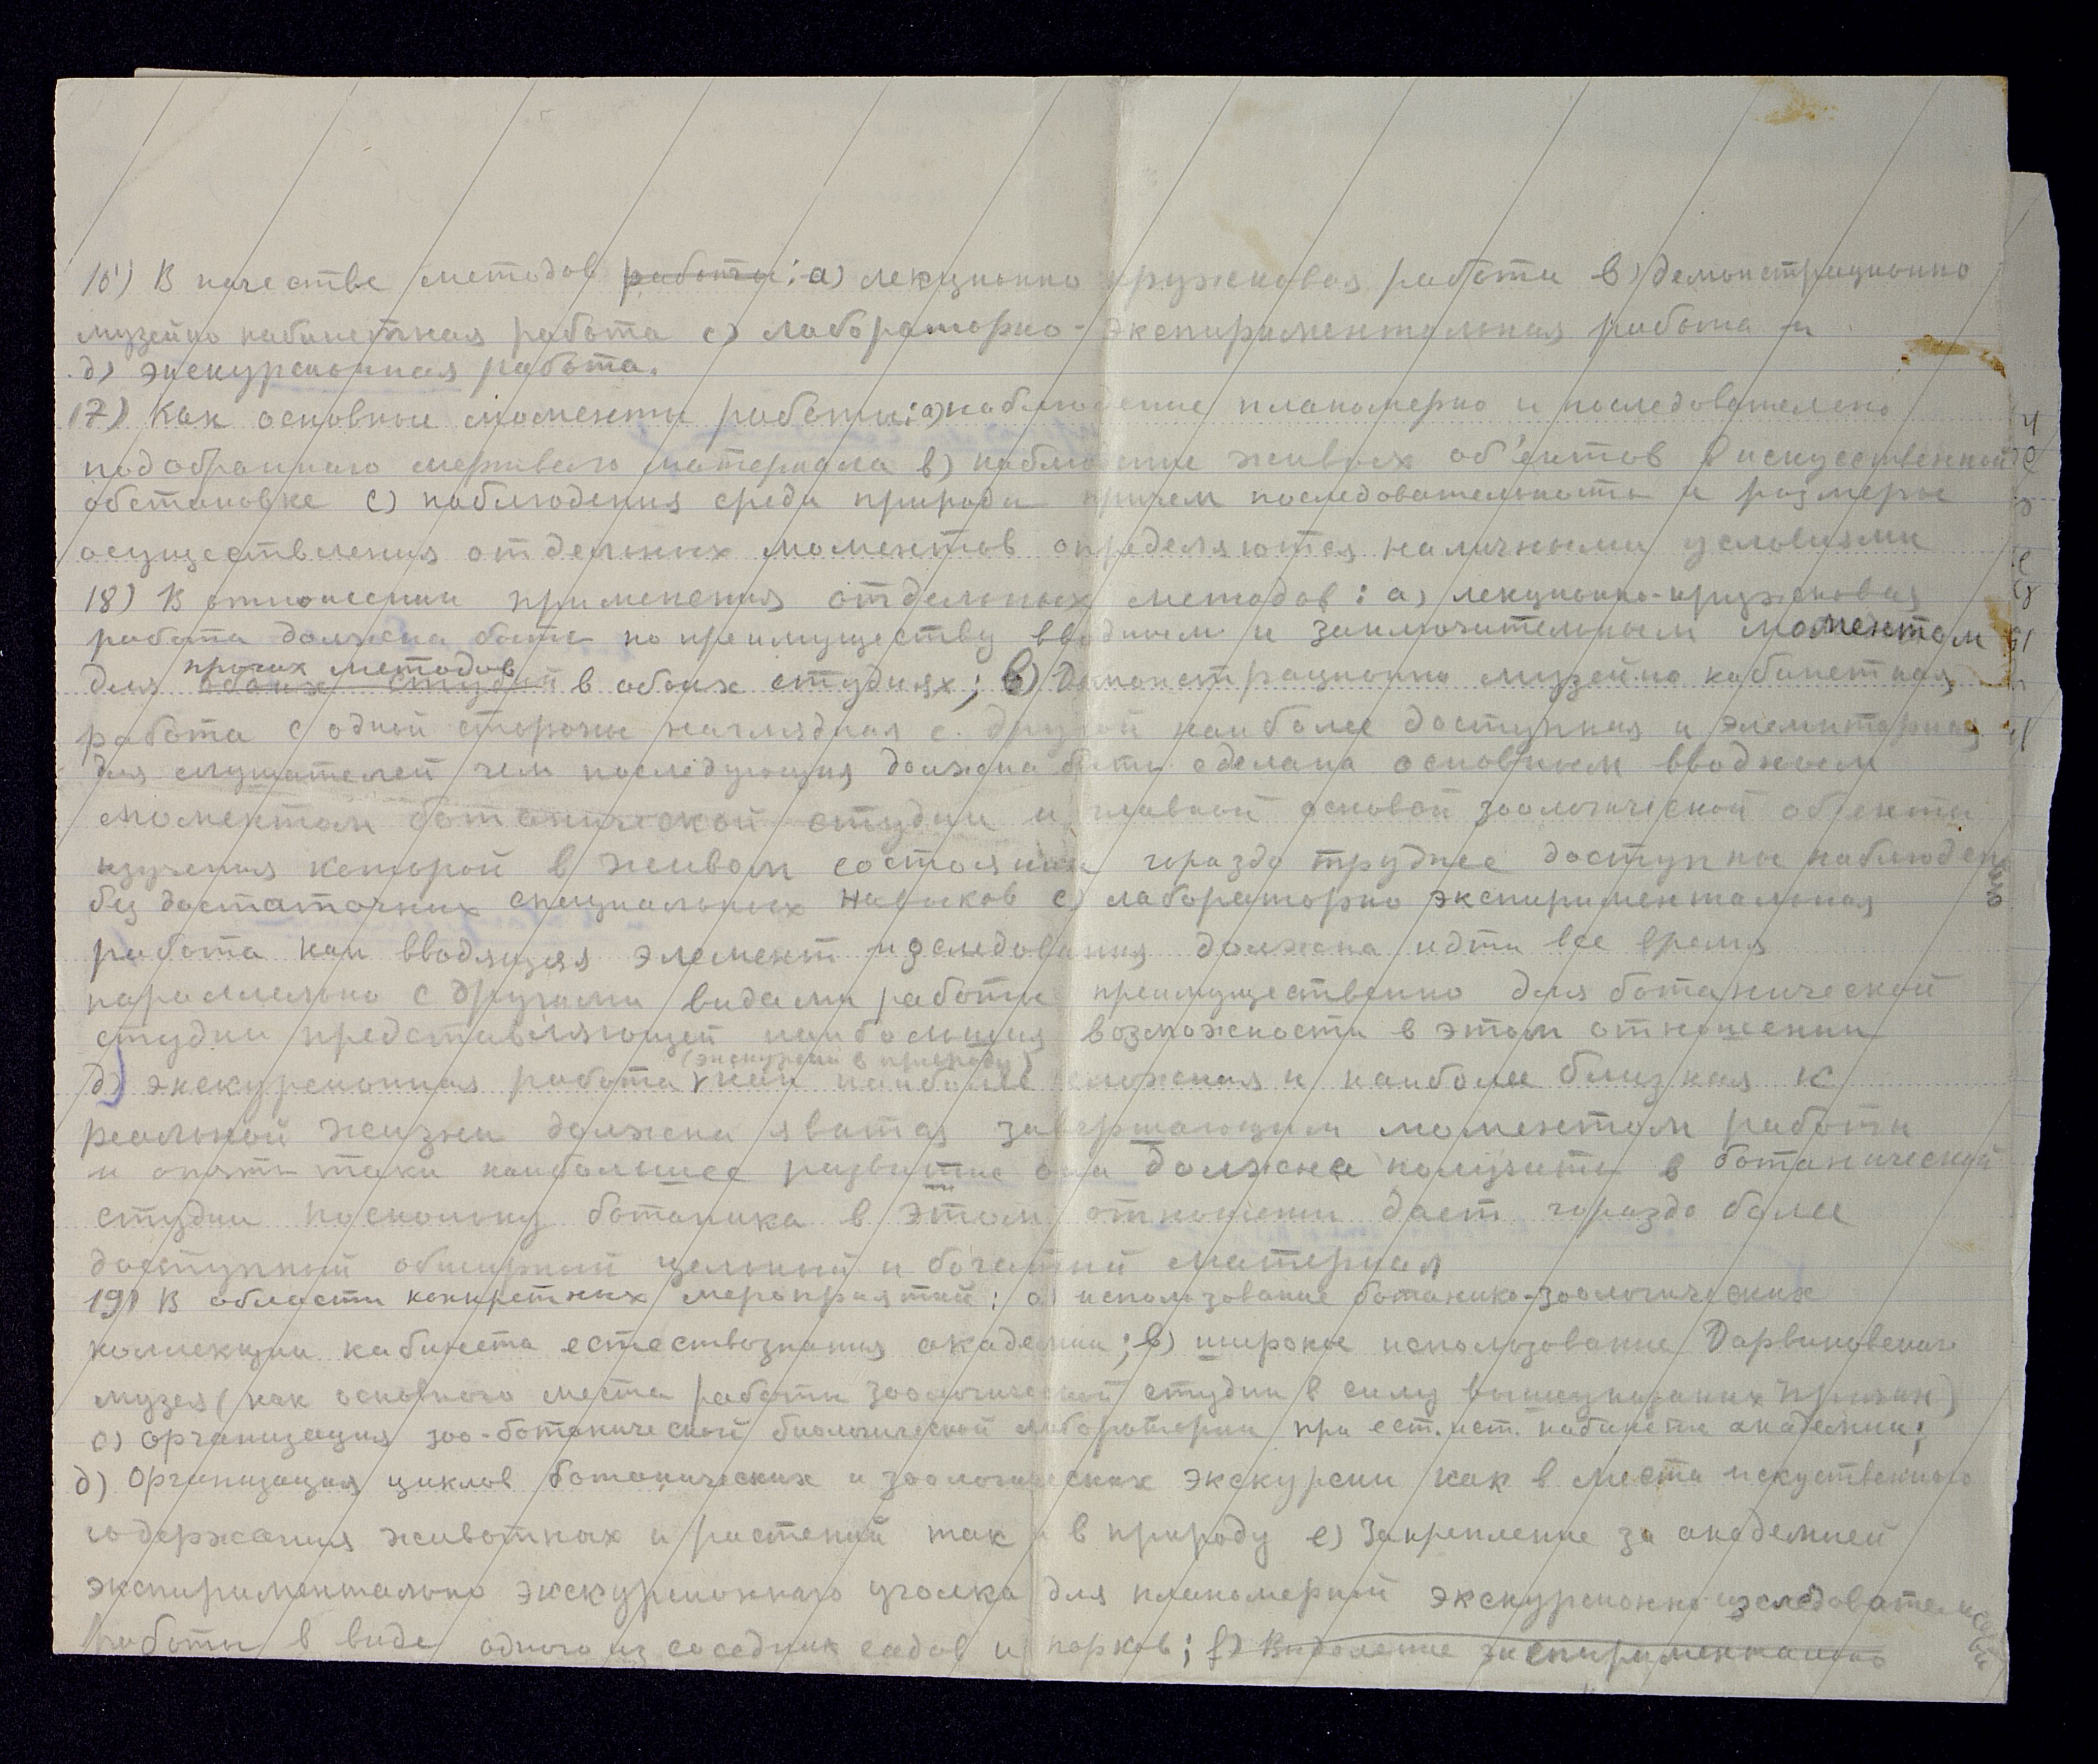 16) В качестве методов работы: а) лекционно кружковая работа в) демонстрационно
музейно кабинетная работа с) лабораторно-экспириментальная работа и
д) экскурсионная работа.
17) Как основные моменты работы: а) наблюдение планомерно и последовательно
подобранного мертвого материала в) наблюдение живых об'ектов в искусственной
обстановке с) наблюдения среди природы причем последовательность и размеры
осуществления отдельных моментов определяются наличными условиями
18) В отношении применения отдельных методов: а) лекционно-кружковая
работа должна быть по преимуществу вводным и заключительным моментом
прочих методов
для обоих студий в обоих студиях; в) Демонстрационно музейно кабинетная
работа с одной стороны наглядная с другой наиболее доступная и элементарная
для слушателей чем последующая должна быть сделана основным вводным
моментом ботанической студии и главной основой зоологической объекты
изучения которой в живом состоянии гораздо труднее доступны наблюдению
без достаточных специальных навыков с) лабораторно экспириментальная
работа как вводящая элемент изследования должна идти все время
параллельно с другими видами работы преимущественно для ботанической
студии представляющей наибольшия возможности в этом отношении
(экскурсии в природу)
д) экскурсионная работа как наиболее сложная и наиболее близкая к
реальной жизни должна явится завершающим моментом работы
и опять таки наибольшее развитие она должна получить в ботанической
студии поскольку ботаника в этом отношении дает гораздо более
доступный обширный цельный и богатый материал
19) В области конкретных мероприятий: а) использование ботанико-зоологических
коллекции кабинета естествознания академии; в) широкое использование Дарвиновского
музея (как основного места работы зоологической студии в силу вышеуказаных причин)
с) организация зоо-ботанической биологической лаборатории при ест. ист. кабинете академии;
д) Организация циклов ботанических и зоологических экскурсии как в места искуственного
содержания животных и растений так и в природу е) Закрепление за академией
экспириментально экскурсионного уголка для планомерной экскурсионно изследовательской
работы в виде одного из соседних садов и парков; f) Выделение экспириментально